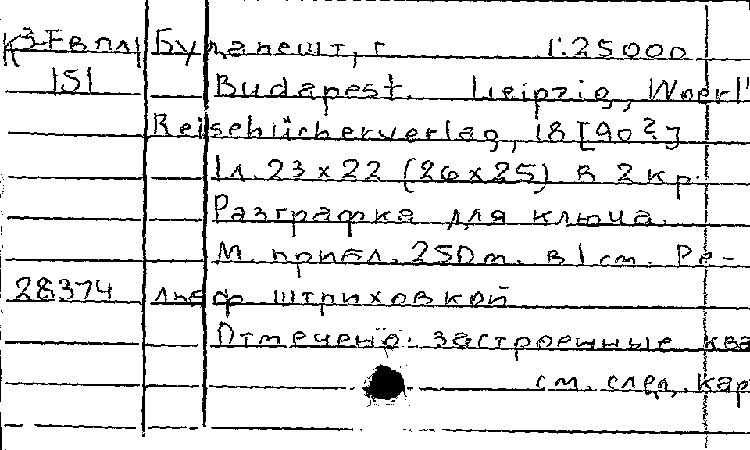 К 3-Евпл Будапешт, г 1:25000
151 Budapest. Leipzig, Woerl'
Reisebücherverlag, 18[90?]
1л. 23 x 22 (26x25) в 2 кр.
Разграфка для ключа.
М. прибл. 250m. в 1 cm. Ре-
28374 льеф штриховкой
Отмечено: застроенные ква
см. след. кар